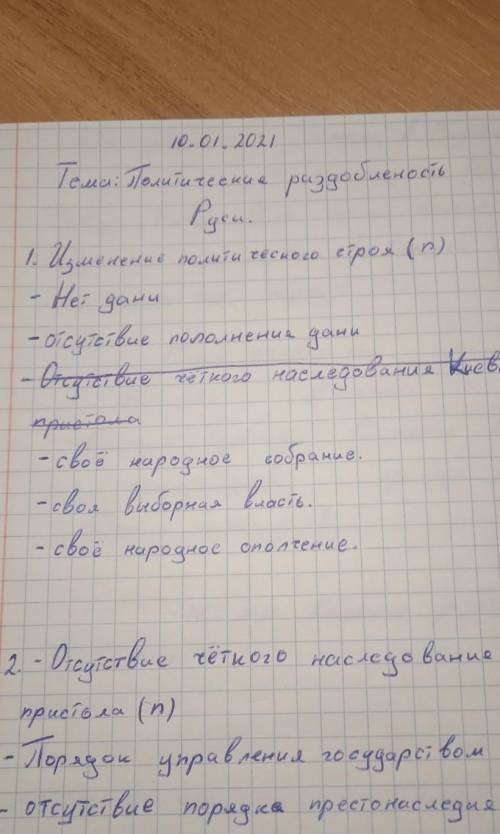 10.01.2021
Тема: Политические раздобленость
Руси.
1. Изменение политического строя (п)
- Нет дани
- отсутствие пополнение дани
- Отсутствие чёткого наследования Киев.
пристола
- своё народное собрание.
- своя выборная власть.
- своё народное ополчение.
2. - Отсутствие чёткого наследование
пристола (п)
- Порядок управления государством
- отсутствие порядка престонаследия